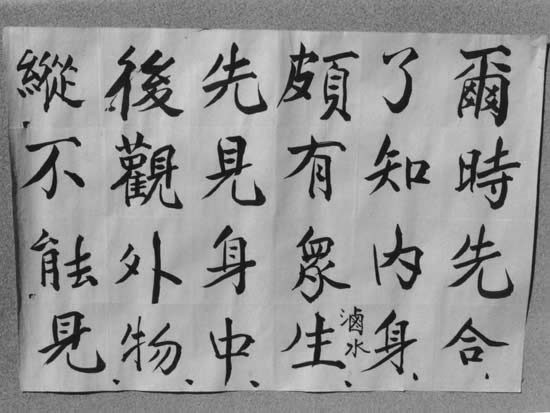 爾時先合、
了知內身、
頗有眾生、
滷水
先見身中、
後觀外物、
縱不能見